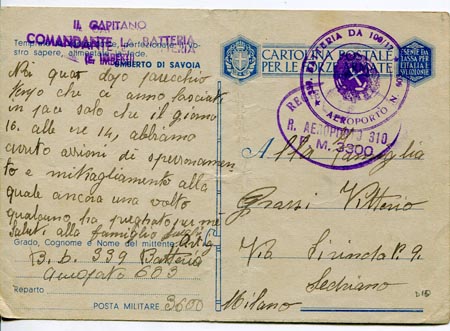 IL CAPITANO
COMANDANTE LA BATTERIA
UMBERTO DI SAVOIA
Noi quat dopo parecchio
tempo che ci anno lasciati
in pace solo che il giorno
16. alle ore 14, abbiamo
avuto azzioni di
e mitragliamento alla
quale ancora una volto
qualcuno, ha pregato per me
Saluti alla famiglia
Grado, Cognome e Nome del mittente
B. b. 339 Batteria
603
Reparto
POSTA MILITARE 3600
CARTOLINA POSTALE
PER LE FORZE ARMATE
SIATE DEGNI
L'ITALIA E
RIVOLUZIONE
BATTERIA DA
AEROPORTO N.
R. AEROPORTO 310
P. M. 3300
Alla Famiglia
Grassi Vittorio
Via P. 9.
Sedriano
Milano